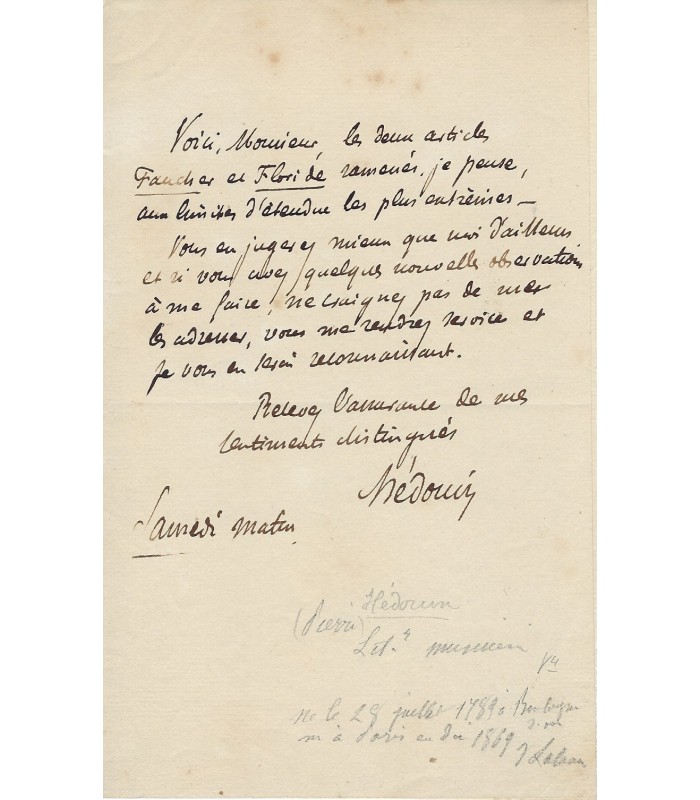 Voici, Monsieur, les deux articles
Faucher et Floride ramenés, je pense,
aux limites d'étendue les plus extrêmes –
Vous en jugerez mieux que moi d'ailleurs
et si vous avez quelques nouvelles observations
à me faire, ne craignez pas de
les adresser, vous me rendrez service et
je vous en serai reconnaissant.
Recevez l'assurance de mes
sentiments distingués
Hédouin
Samedi matin
Hédouin
(Pierre)
musicien
né le 28 juillet 1789 à Boulogne
à Paris en 1869